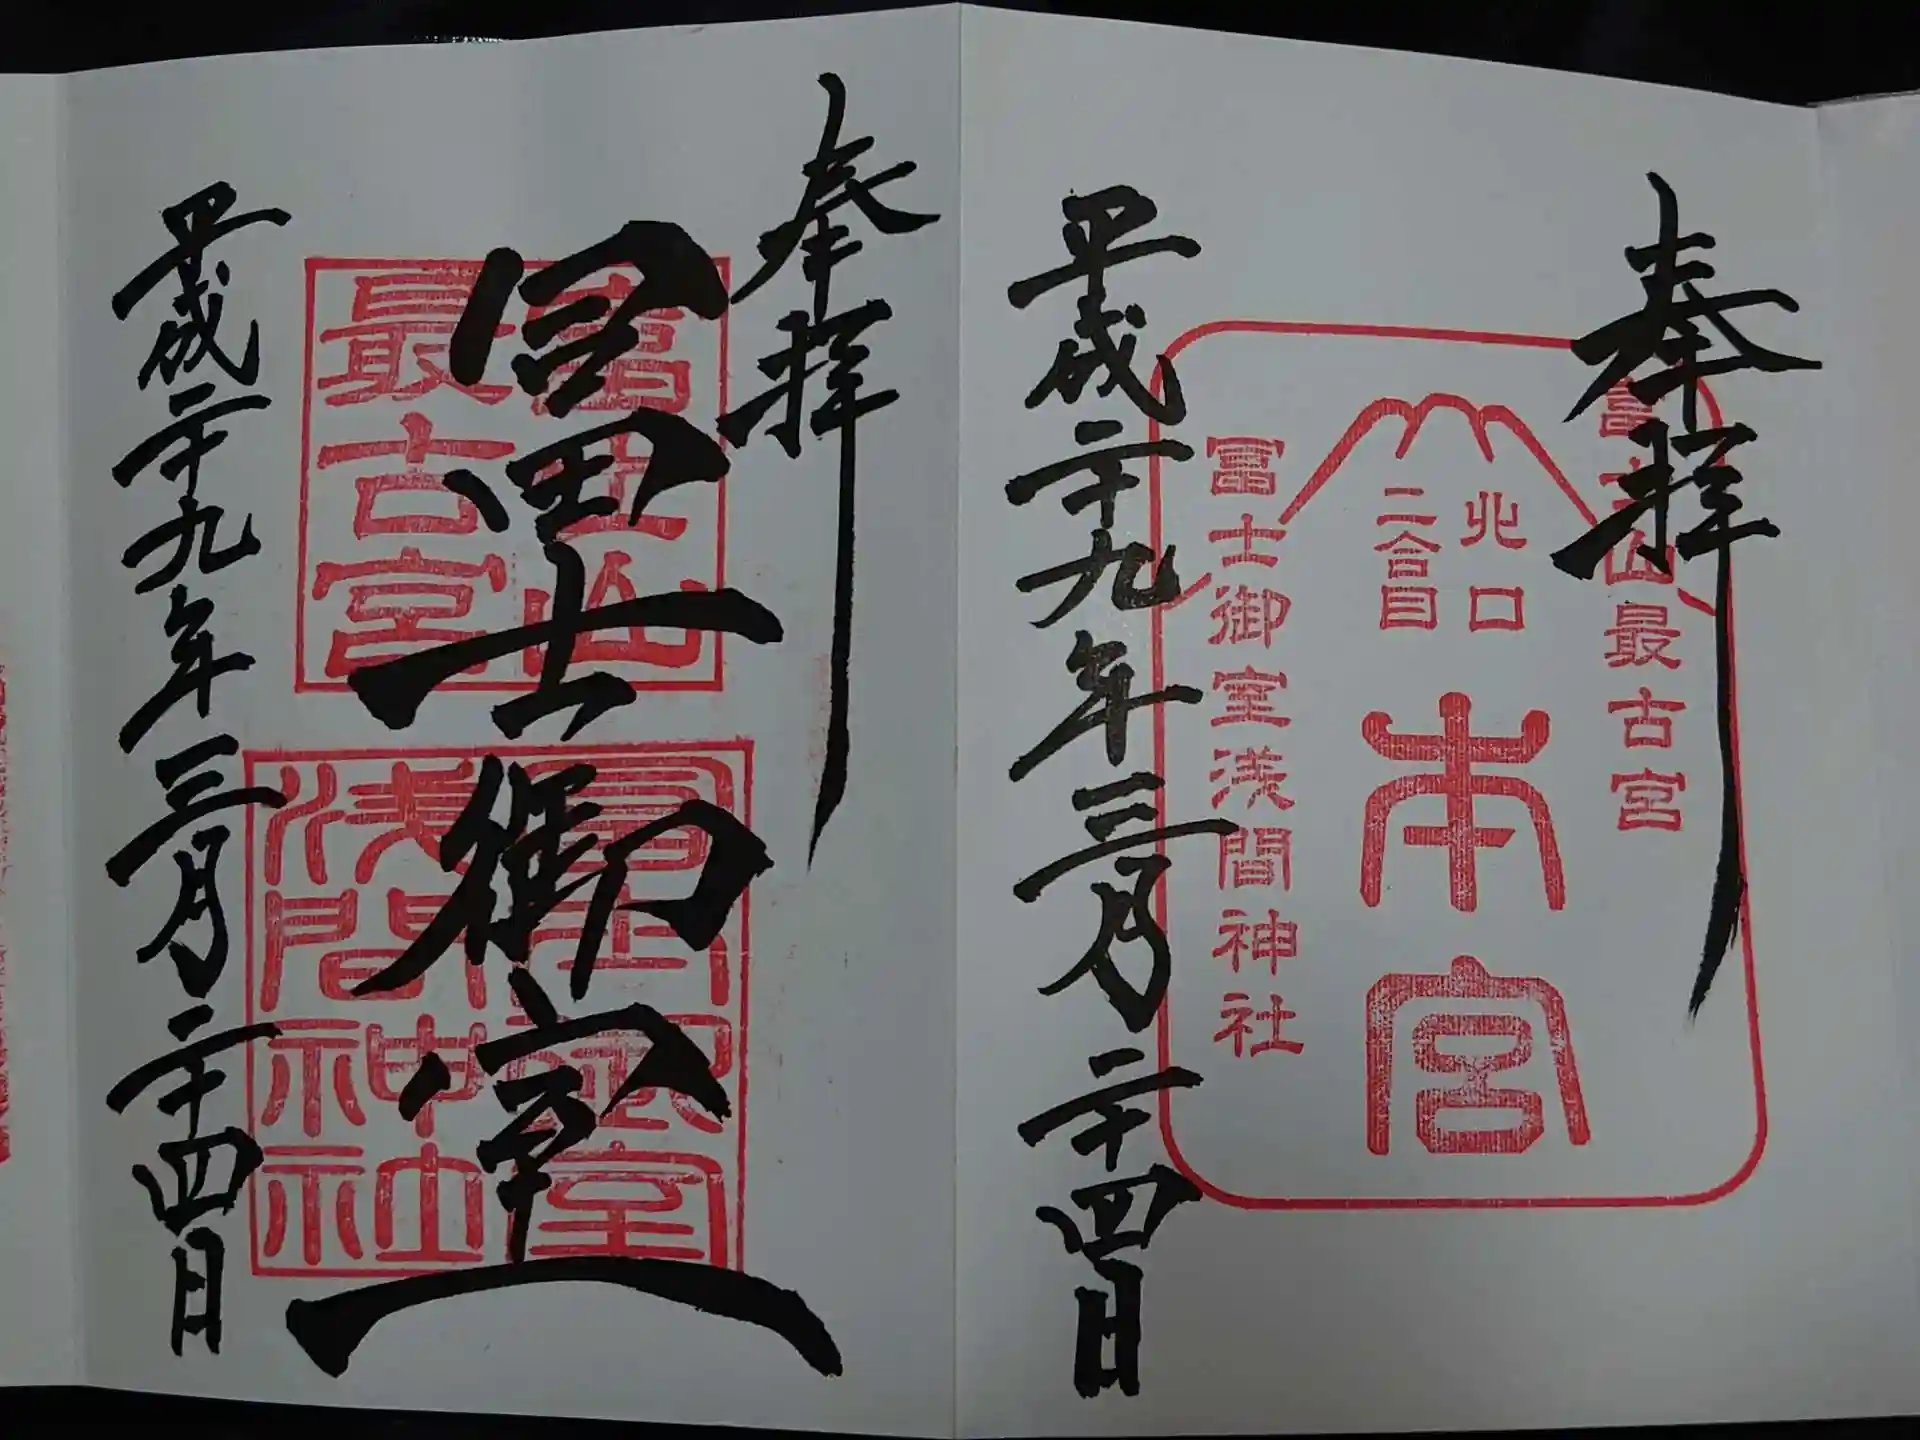 奉拝
富士山最古宮
北口
二合目
本宮
冨士御室浅間神社
平成二十九年三月二十四日
奉拝
富士山
最古宮
冨士御室
冨士御室
浅間神社
平成二十九年三月二十四日